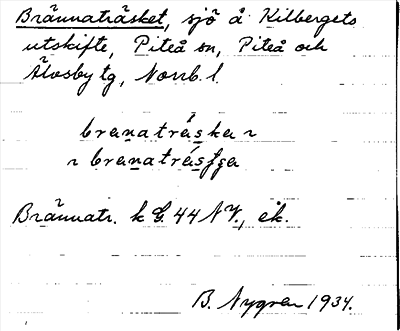 Brännaträsket, sjö å Kilbergets
utskifte, Piteå sn, Piteå och
Älvsby tg, Norrb. l.
branatráska ~
~ branatrásʃga
Brännatr. k G. 44 NV, ek.
B. Nygren 1934.